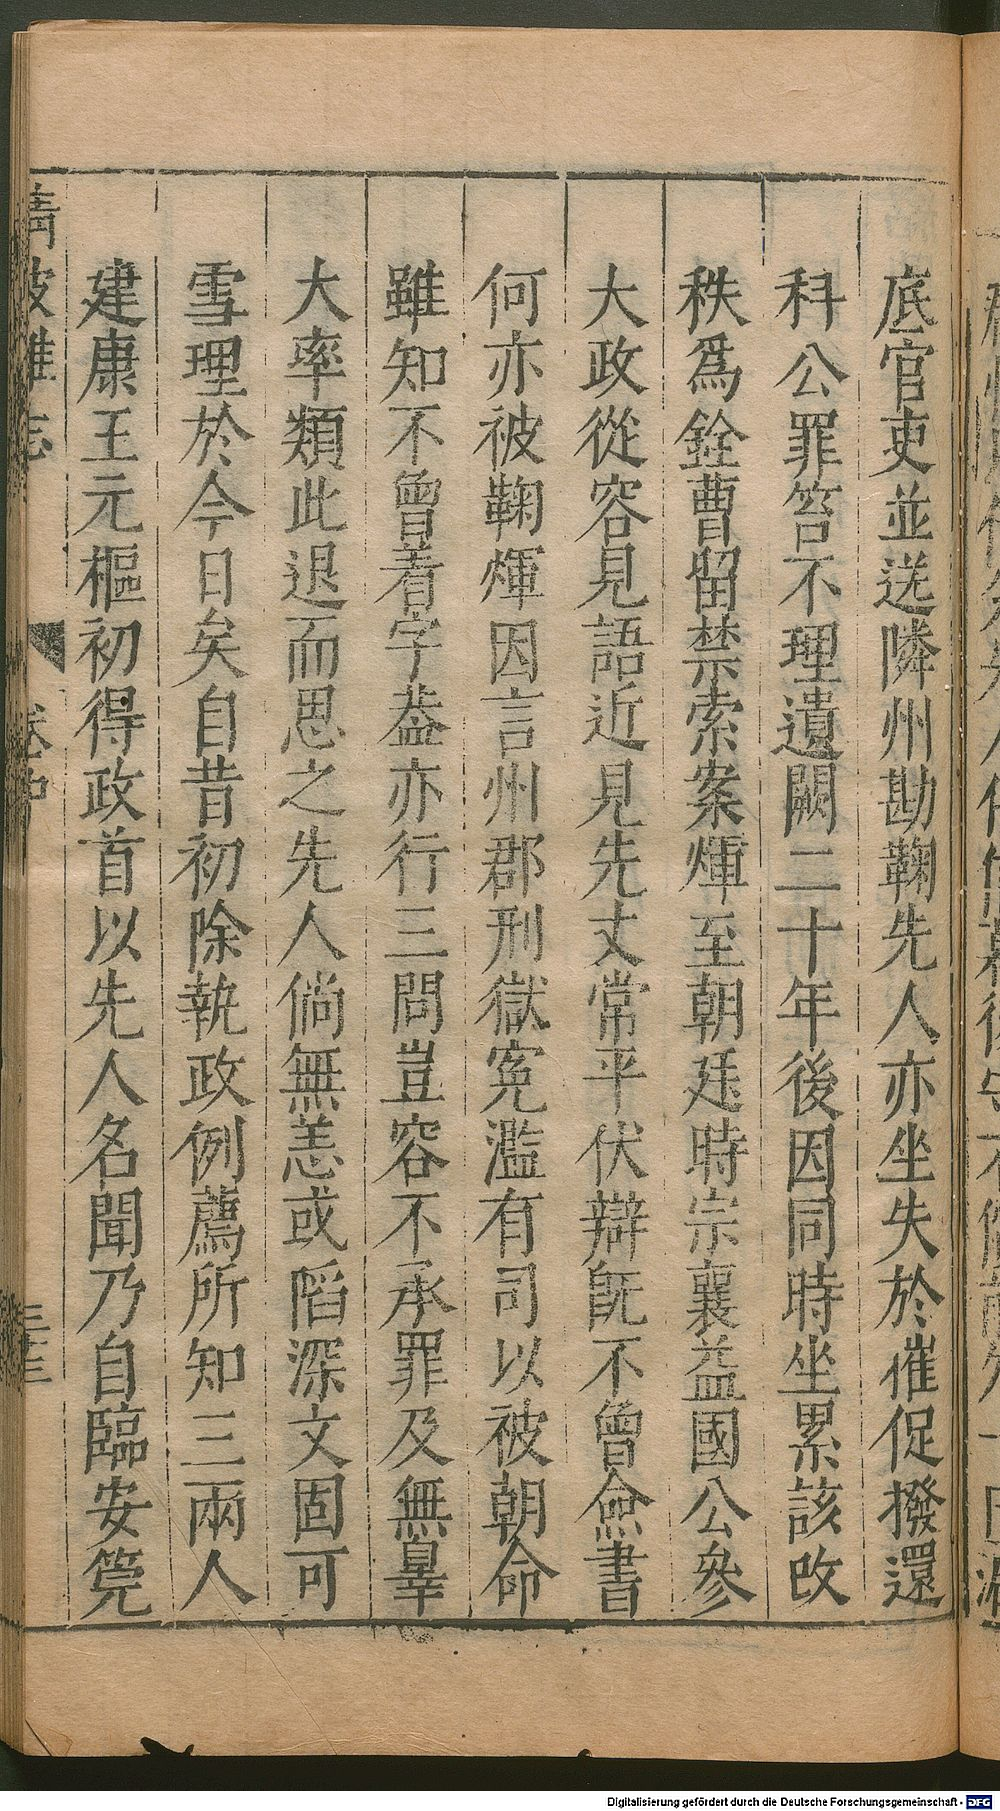 底官吏並送隣州勘鞫先人亦坐失於催促撥還
科公罪笞不理遺闕二十年後因同時坐累該改
秩爲銓曹留禁索案煇至朝廷時宗襄益國公參
大政從容見語近見先丈常平伏辯旣不曾僉書
何亦被鞫煇因言州郡刑獄寃濫有司以被朝命
雖知不曾着字葢亦行三問豈容不承罪及無辜
大率類此退而思之先人倘無恙或䧟深文固可
雪理於今日矣自昔初除執政例薦所知三兩人
建康王元樞初得政首以先人名聞乃自臨安筦
清波雜志 卷中 三十三
Digitalisierung gefördert durch die Deutsche Forschungsgemeinschaft - DFG